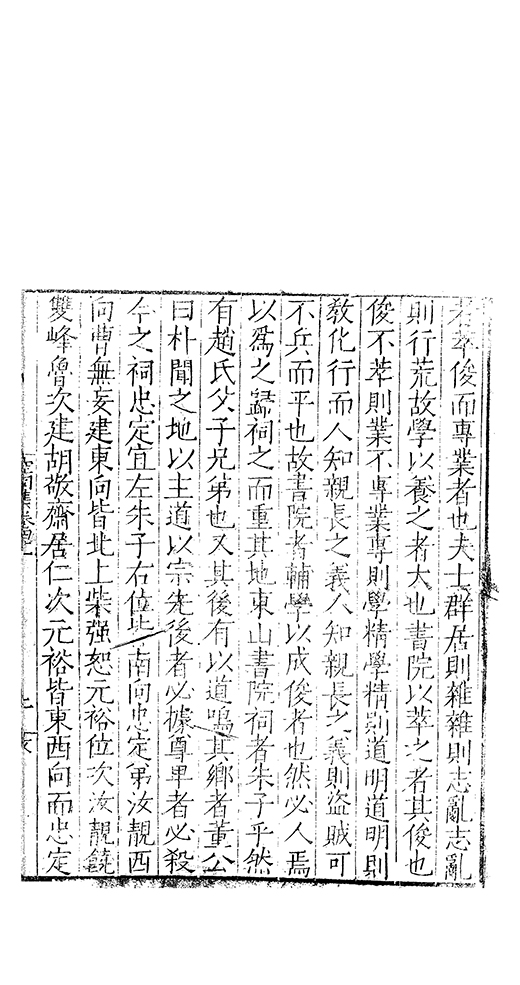 萃俊而專業者也夫士群居則雜雜則志亂志亂
則行荒故學以養之者大也書院以萃之者其俊也
俊不萃則業不專業專則學精學精則道明道明則
敎化行而人知親長之義人知親長之義則盜賊可
不兵而平也故書院者輔學以成俊者也然必人焉
以爲之歸祠之而重其地東山書院祠者朱子乎然
有趙氏父子兄弟也又其後有以道鳴其鄉者董公
曰朴聞之地以主道以宗先後者必據尊卑者必殺
今之祠忠定宜左朱子右位皆南向忠定弟汝靚西
向曹無妄建東向皆北上柴强恕元裕位次汝靚饒
雙峰魯次建胡敬齋居仁次元裕皆東西向而忠定